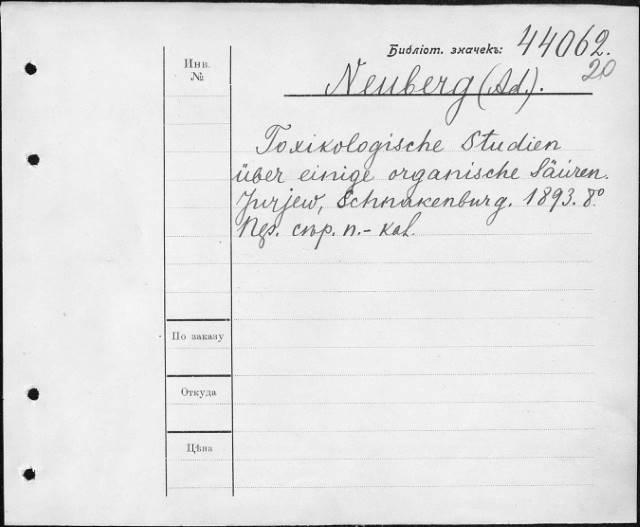 Библіот. значекъ: 44062.
20
Инв.
№
Neuberg (Ad.).
Toxikologische Studien
über einige organische Säuren.
Jurjew, Schnakenburg. 1893. 8°
стр. п.-
По заказу
Откуда
Цѣна